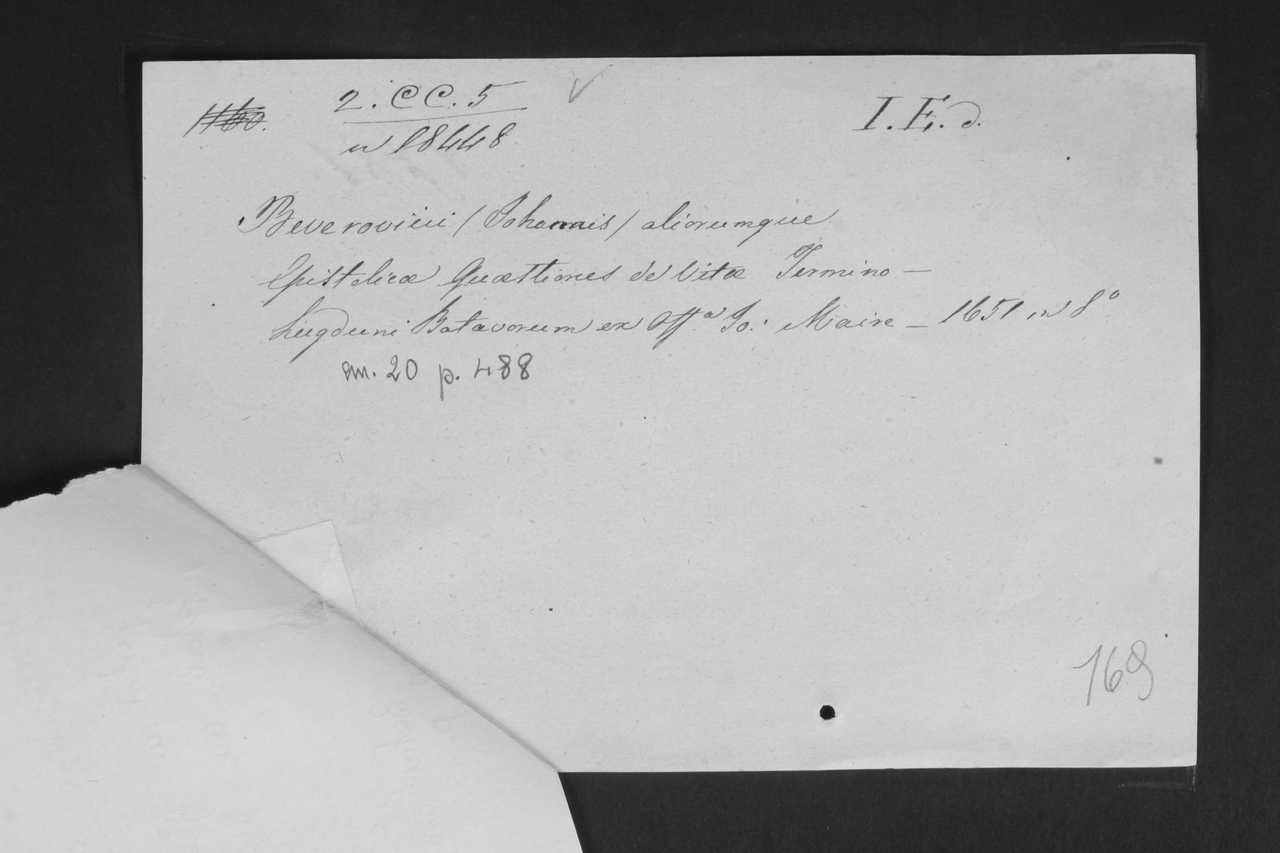 1160.
2. CC. 5
n 18448
I. E. d.
Beverovicii (Johannis) aliorumque
Epistolicæ Quæstiones de Vitæ Termino –
Lugduni Batavorum ex Off.ª Jo: Maire – 1651 in 8°
m. 20 p. 488
169